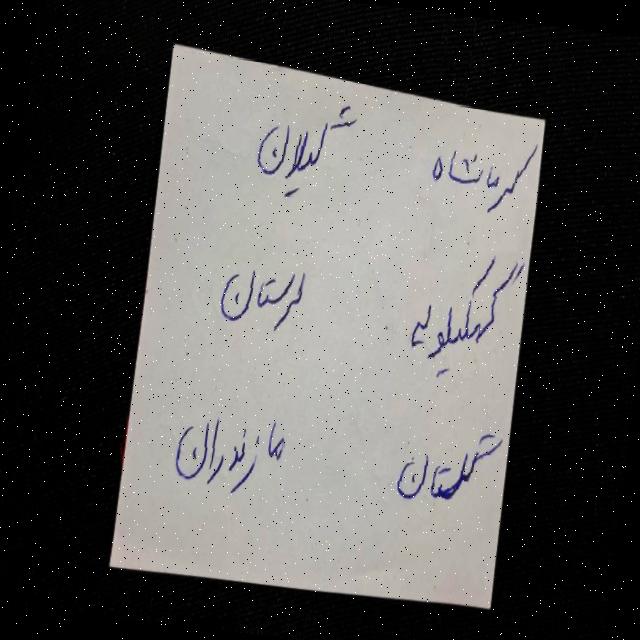 کرمانشاه گیلان
کهگیلویه لرستان
گلستان مازندران